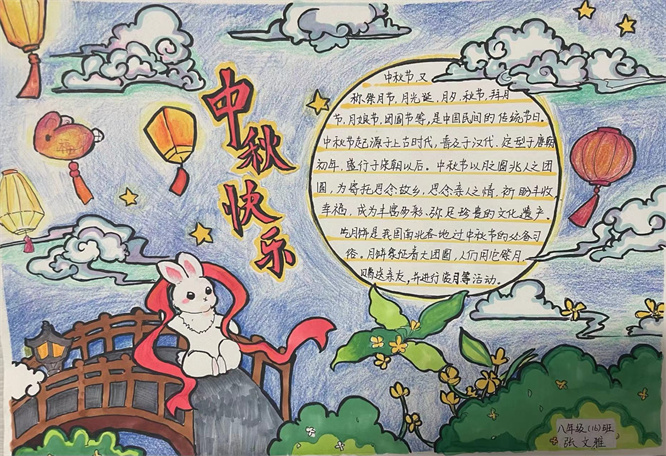 中秋快乐
中秋节,又
称祭月节,月光诞,月夕,秋节,拜月
节,月娘节,团圆节等,是中国民间的传统节日。
中秋节起源于上古时代,普及于汉代,定型于唐朝
初年,盛行于宋朝以后。中秋节以月之圆兆人之团
圆,为寄托思念故乡,思念亲人之情,祈盼丰收、
幸福,成为丰富多彩、弥足珍贵的文化遗产。
吃月饼是我国南北各地过中秋节的必备习
俗。月饼象征着大团圆,人们用它祭月、
赠送亲友,并进行赏月等活动。
八年级(16)班
张文雅